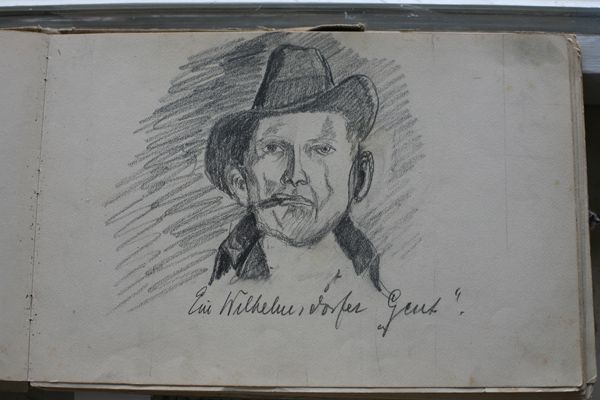 Ein Wilhelmsdorfer „Gent“.